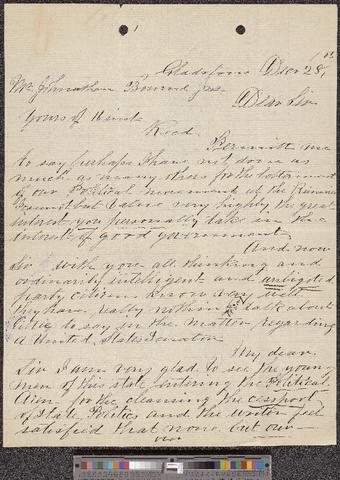 Gladstone Dec 28,
Mr. Johnathan Bourne Jr.
Dear Sir
Yours of Recd.
Permit me
to say perhaps I have not done as
much as many others for the betterment
of our Political movement at the
but I also very highly the great
interest you personally take in the
interest of good government
And now
Sir with you all thinking and
ordinarily intelligent and unbigoted
party citizens know very well
they have really nothing to talk about
to say in the matter regarding
a United States Senator
My dear
Sir I am very glad to see the young
men of this state entering the Political
for the cleansing the cesspool
of State Politics and the writer feel
satisfied that none but our